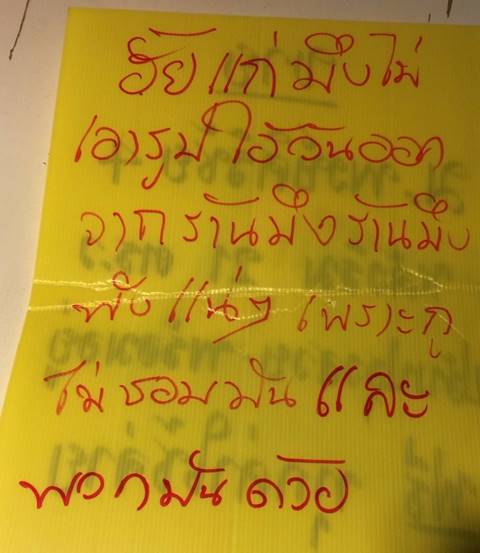 อัยแก่มึงไม่
เอารูปไอ้อ้วนออก
จากร้านมึงร้านมึง
พังแน่ๆ เพราะกู
ไม่ชอบมันและ
พวกมันด้วย